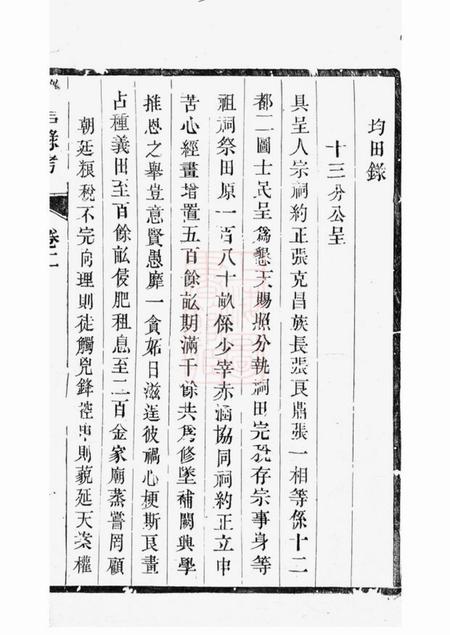 均田錄
十三分公呈
具呈人宗祠約正張克昌族長張良鼎張一相等係十二
都二圖士民呈爲懇天賜照分執祠田完稅存宗事身等
祖祠祭田原一百八十畝係少宰赤涵協同祠約正立中
苦心經畫增置五百餘畝期滿千餘共爲修墜補闕興學
推恩之舉豈意賢愚靡一貪妬日滋逞彼禍心梗斯良畫
占種義田至百餘畝侵肥租息至二百金家廟蒸嘗罔顧
朝廷粮稅不完向理則徒觸兇鋒控
則藐延天案權
錄考
卷二